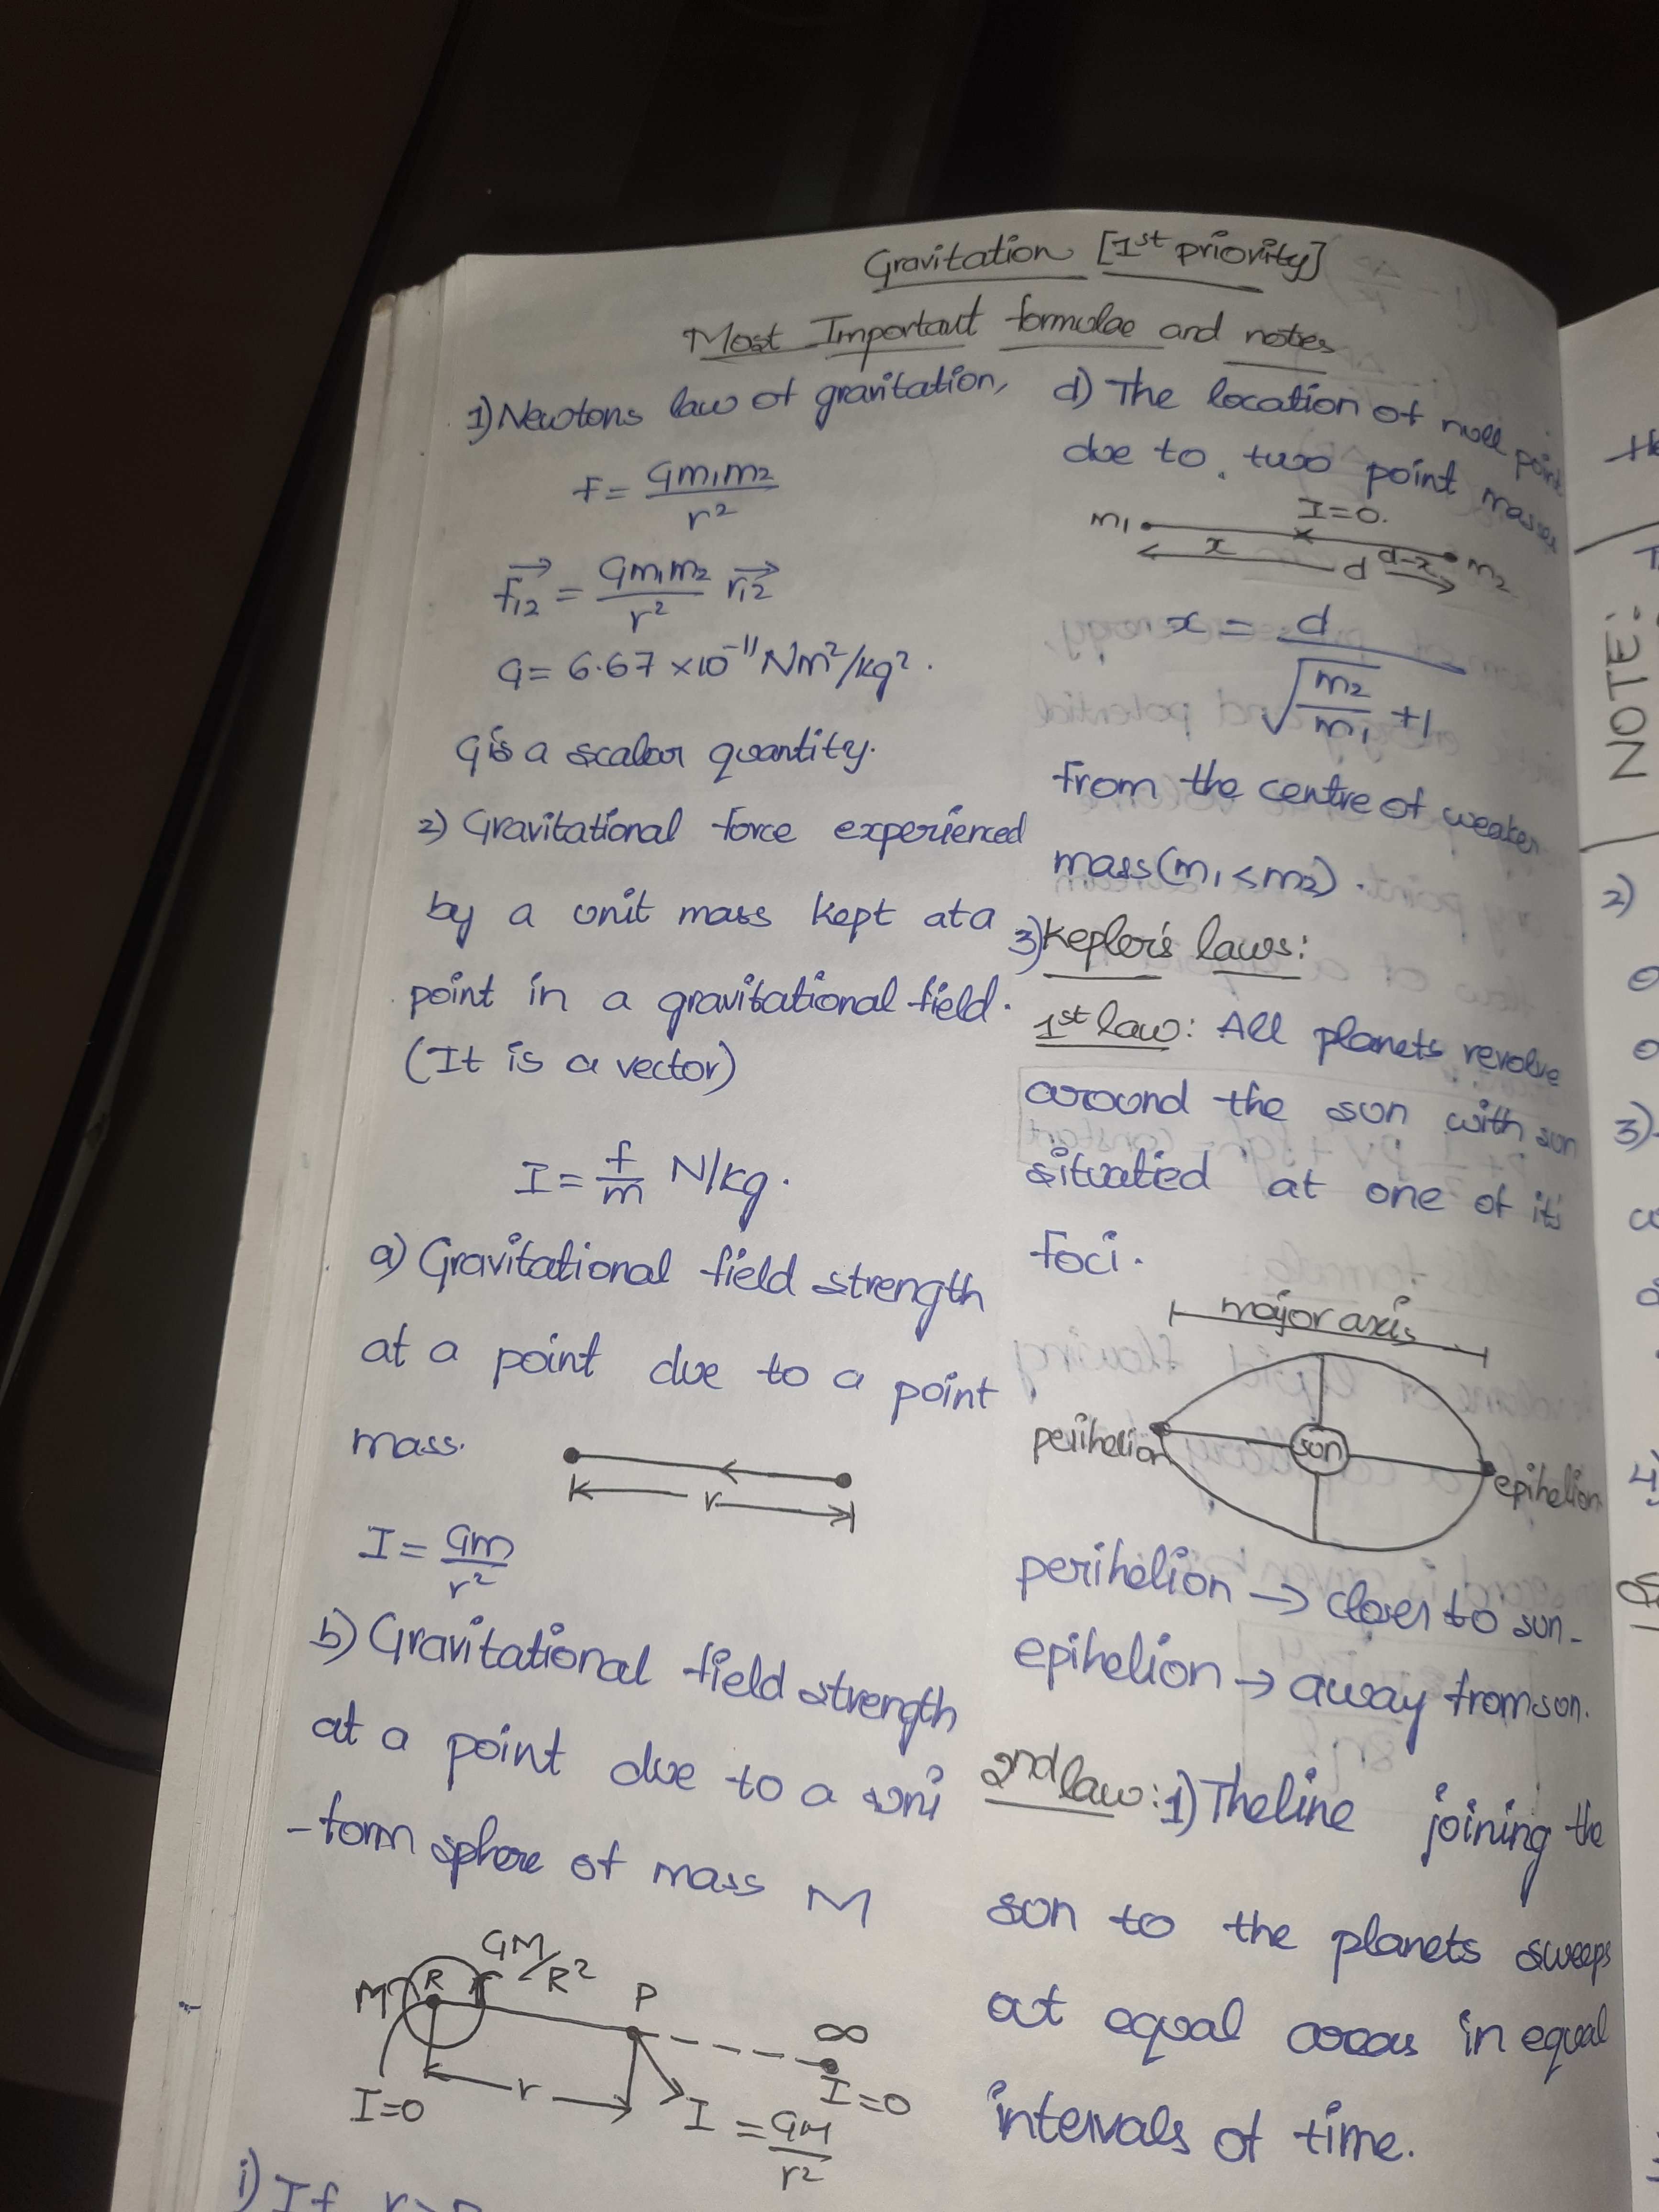 Gravitation [1st priority]
Most Important formulae and notes
1) Newtons law of gravitation,
F = Gm1m2 / r²
F12 = Gm1m2 / r² r12
G = 6.67 × 10⁻¹¹ Nm²/kg².
G is a scalar quantity.
2) Gravitational force experienced
by a unit mass kept at a
point in a gravitational field.
(It is a vector)
I = f/m N/kg.
a) Gravitational field strength
at a point due to a point
mass.
r
I = Gm / r²
b) Gravitational field strength
at a point due to a uni
-form sphere of mass M
GM/R²
M R P
∞
r
I=0 I = GM / r² I=0
i) If
d) The location of null point
due to two point masses
I=0.
m1 x d d-x m2
x = d / √(m2/m1) +1
from the centre of weaker
mass (m1 < m2).
3) Kepler's laws:
1st law: All planets revolve
around the sun with sun
situatied at one of its
foci.
major axis
perihelion sun epihelion
perihelion → closer to sun.
epihelion → away from sun.
2nd law: 1) The line joining the
sun to the planets sweeps
at equal areas in equal
intervals of time.
NOTE:
2)
3)
4)